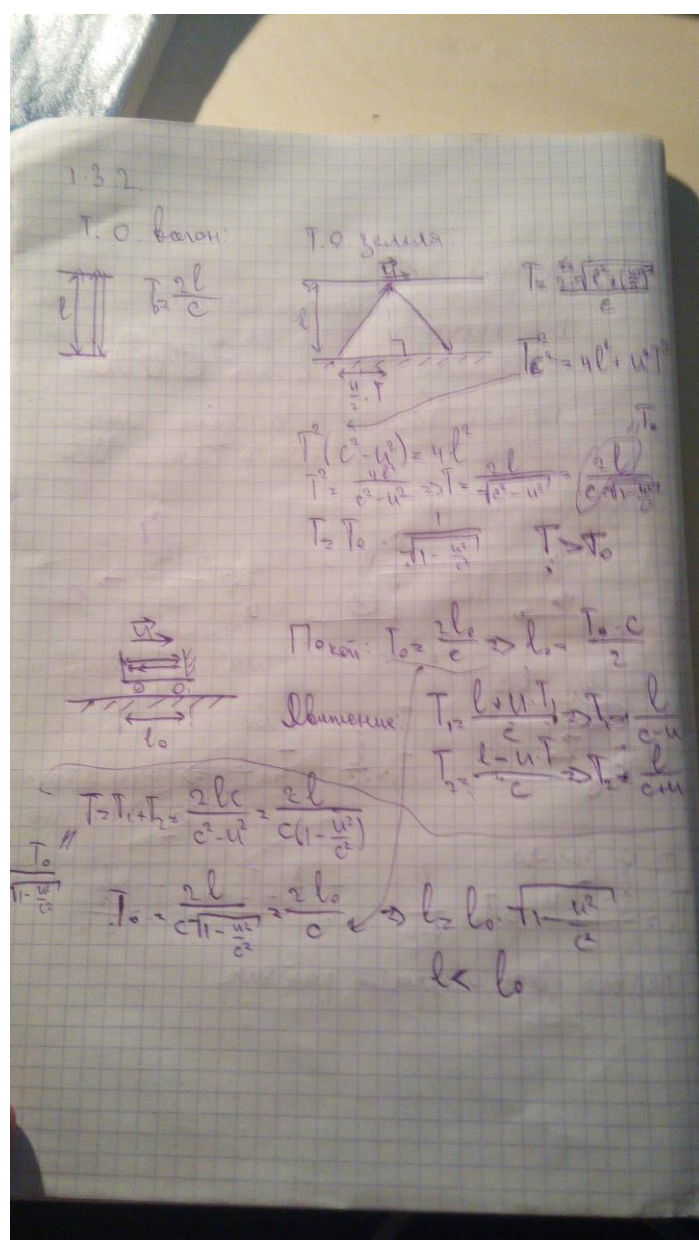 1.3.2
Т.О. вагон:
l T₀ = 2l/c
Т.О земля
u
l
u/2 · T
T = 2·√(l² + (uT/2)²)/c
T²c² = 4l² + u²T²
T²(c² - u²) = 4l²
T² = 4l²/(c² - u²) => T = 2l/√(c² - u²) = 2l/(c·√(1 - u²/c²))
"T₀
T = T₀ · 1/√(1 - u²/c²) T > T₀
u
l₀
Покой: T₀ = 2l₀/c => l₀ = T₀·c/2
Движение: T₁ = (l + u·T₁)/c => T₁ = l/(c-u)
T₂ = (l - uT)/c => T₂ = l/(c+u)
T = T₁ + T₂ = 2lc/(c² - u²) = 2l/(c(1 - u²/c²))
T₀/√(1 - u²/c²) "
T₀ = 2l/(c√(1 - u²/c²)) = 2l₀/c => l = l₀·√(1 - u²/c²)
l < l₀